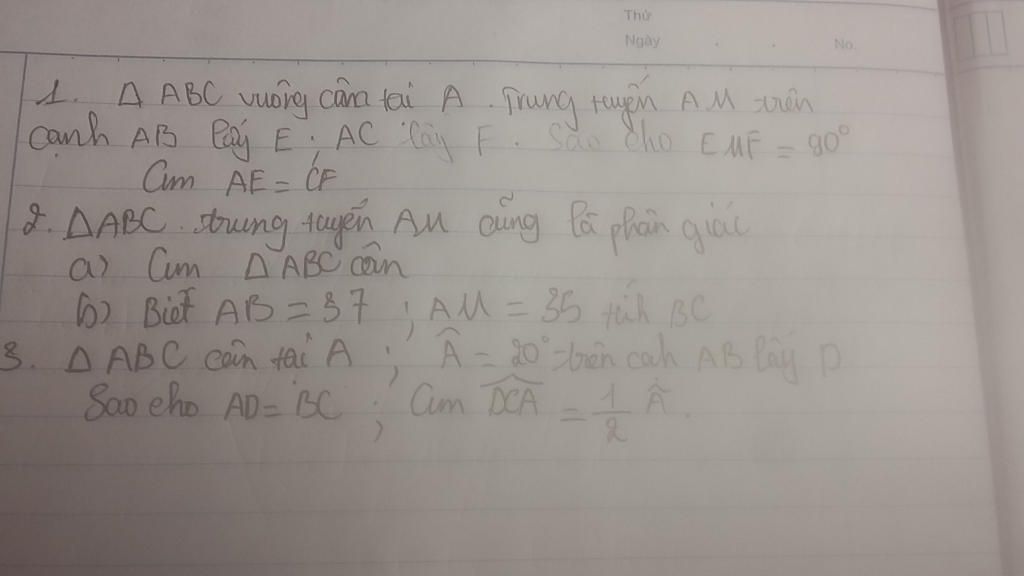 Thứ
Ngày . . No.
1. Δ ABC vuông cân tại A. Trung tuyến AM trên
cạnh AB lấy E. AC lấy F. Sao cho EMF = 90°
Cm AE = CF
2. ΔABC. trung tuyến AM cũng là phân giác
a) Cm ΔABC cân
b) Biết AB = 37 ; AM = 35 tính BC
3. Δ ABC cân tại A ; Â = 20° trên cah AB lấy D
Sao cho AD = BC ; Cm DCA = 1/2 Â.